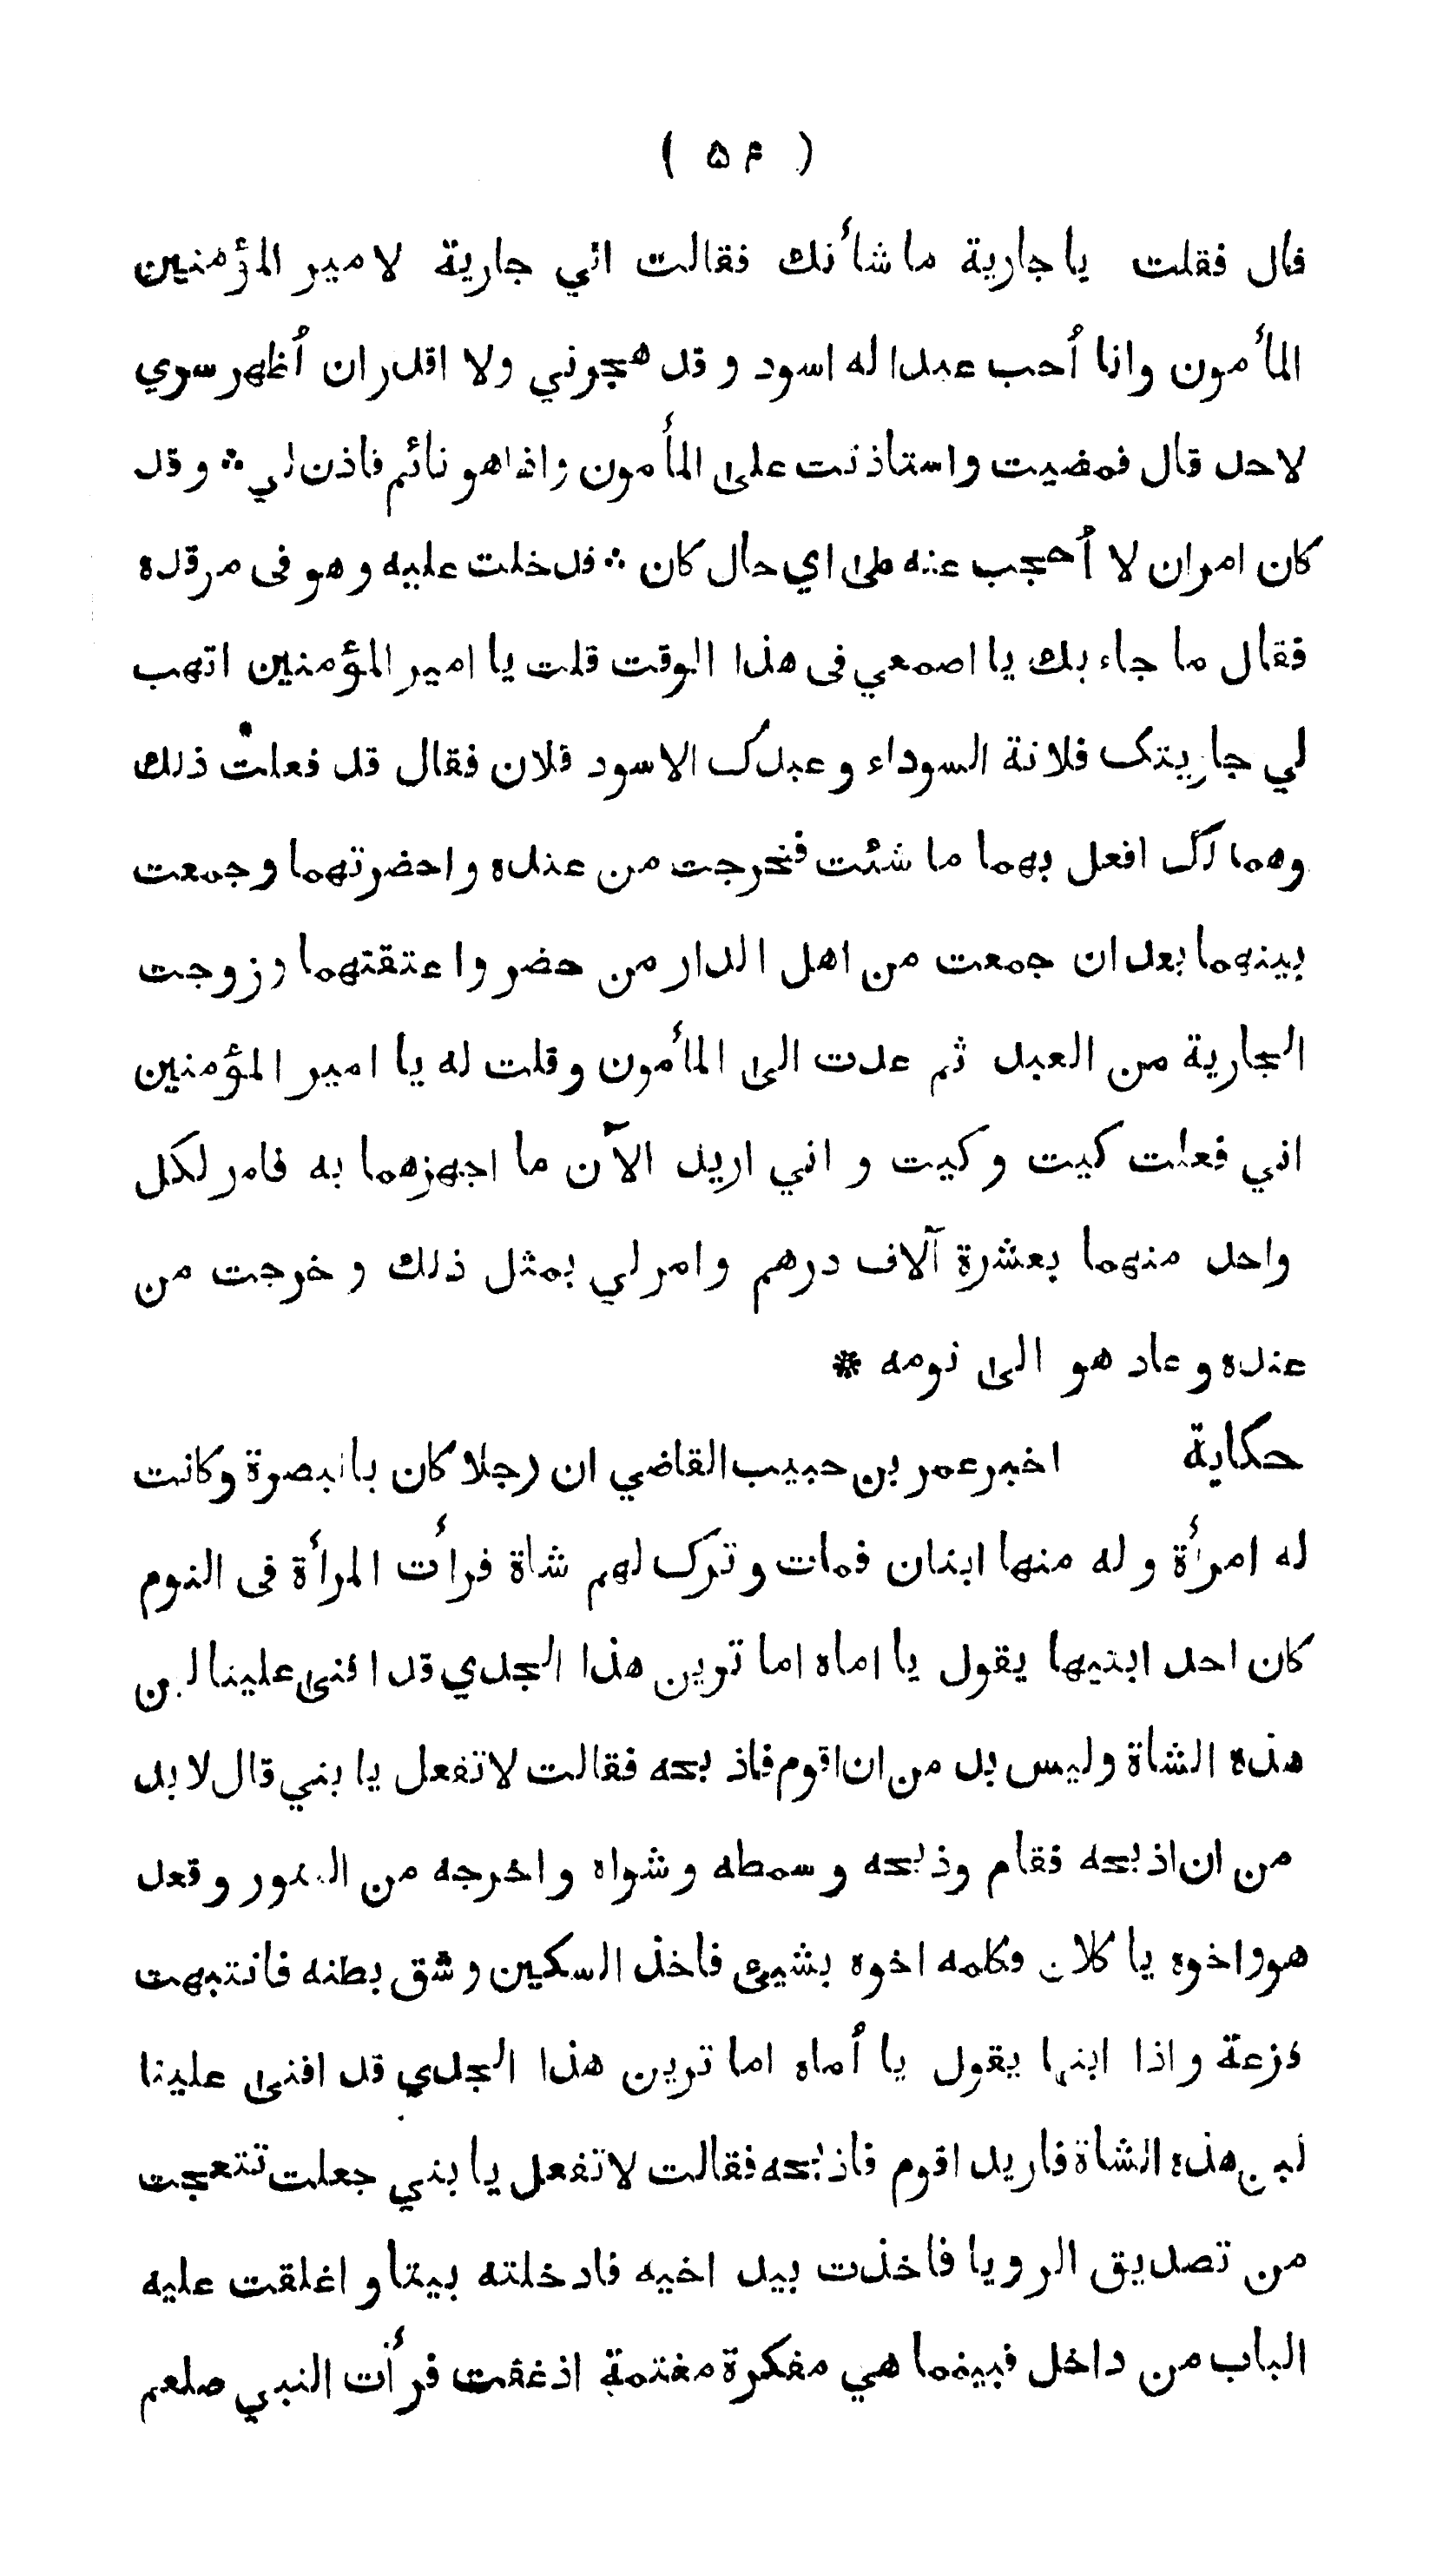 ( ۵۴ )
قال فقلت يا جارية ما شأنك فقالت اني جارية لامير المؤمنين
المأمون وانا أحب عبدا له اسود و قد هجرني ولا اقدر ان أظهر سري
لاحد قال فمضيت و استاذنت على المأمون واذا هو نائم فاذن لي ∴ و قد
كان امر ان لا أحجب عنه على اي حال كان ∴ فدخلت عليه و هو فى مرقده
فقال ما جاء بك يا اصمعي فى هذا الوقت قلت يا امير المؤمنين اتهب
لي جاريتك فلانة السوداء و عبدك الاسود فلان فقال قد فعلت ذلك
وهما لك افعل بهما ما شئت فخرجت من عنده و احضرتهما و جمعت
بينهما بعد ان جمعت من اهل الدار من حضر و اعتقتهما و زوجت
الجارية من العبد ثم عدت الى المأمون و قلت له يا امير المؤمنين
اني فعلت كيت و كيت و اني اريد الآن ما اجهزهما به فامر لكل
واحد منهما بعشرة آلاف درهم و امر لي بمثل ذلك و خرجت من
عنده و عاد هو الى نومه *
حكاية اخبر عمر بن حبيب القاضي ان رجلا كان بالبصرة و كانت
له امرأة و له منها ابنان فمات و ترك لهم شاة فرأت المرأة فى النوم
كان احد ابنيها يقول يا اماه اما ترين هذا الجدي قد افنى علينا لبن
هذه الشاة وليس بد من ان اقوم فاذبحه فقالت لا تفعل يا بني قال لا بد
من ان اذبحه فقام وذبحه و سمطه و شواه و اخرجه من التنور و قعد
هو و اخوه يا كلان و كلمه اخوه بشيئ فاخذ السكين و شق بطنه فانتبهت
فزعة و اذا ابنها يقول يا أماه اما ترين هذا الجدي قد افنى علينا
لبن هذه الشاة فاريد اقوم فاذبحه فقالت لا تفعل يا بني جعلت تتعجت
من تصديق الرويا فاخذت بيد اخيه فادخلته بيتا و اغلقت عليه
الباب من داخل فبينما هي مفكرة مغتمة اذ غفت فرأت النبي صلعم